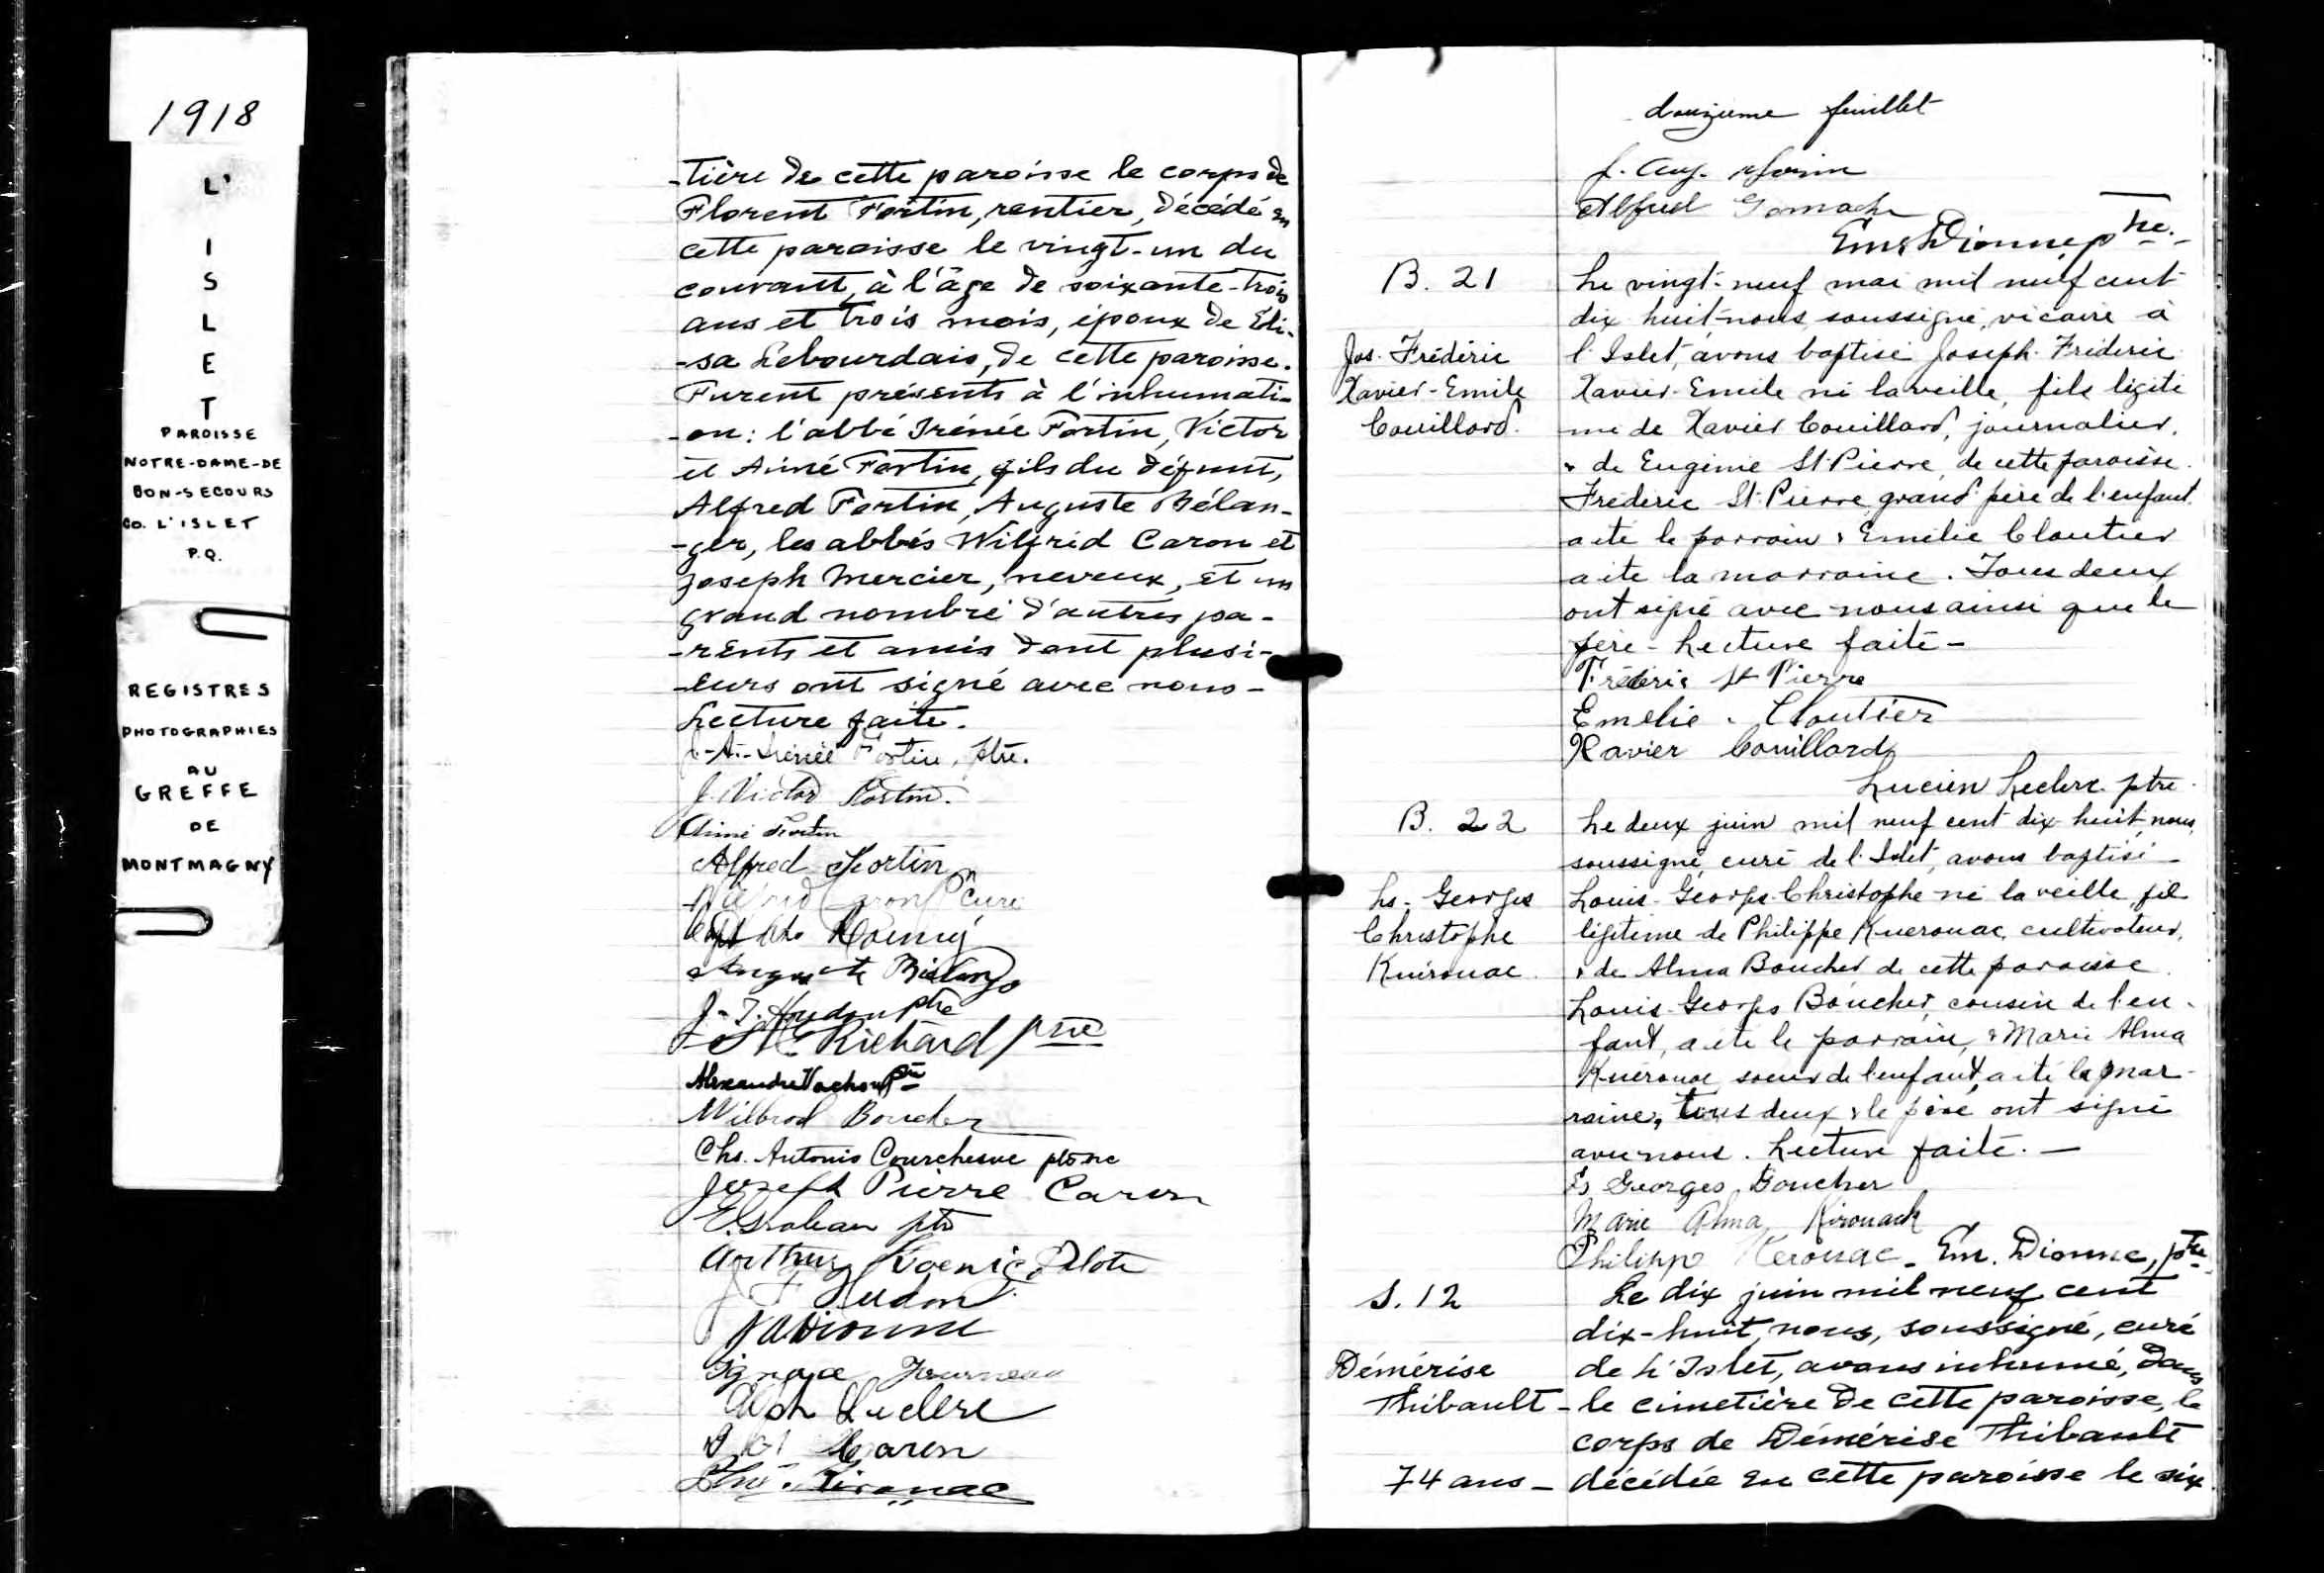 1918
L'
I
S
L
E
T
PAROISSE
NOTRE-DAME-DE
BON-SECOURS
CO. L'ISLET
P.Q.
REGISTRES
PHOTOGRAPHIES
AU
GREFFE
DE
MONTMAGNY
-tière de cette paroisse le corps de
Florent Fortin, rentier, décédé en
cette paroisse le vingt-un du
courant, à l'âge de soixante-trois
ans et trois mois, époux de Éli-
-sa Lebourdais, de cette paroisse.
Furent présents à l'inhumati-
-on: l'abbé Irénée Fortin, Victor
et Aimé Fortin, fils du défunt,
Alfred Fortin, Auguste Bélan-
-ger, les abbés Wilfrid Caron et
Joseph Mercier, neveux, et un
grand nombre d'autres pa-
-rents et amis dont plusi-
-eurs ont signé avec nous-
Lecture faite.
J.-A.-Irénée Fortin, ptre.
J. Victor Fortin.
Aimé Fortin
Alfred Fortin
Wilfrid Caron Ptre Curé
Auguste Bélanger
J.-T. Houdon ptre
Richard ptre
Alexandre Vachon Ptre
Wilbrod Boucher
Chs. Antonio Courchesne ptre
Joseph Pierre Caron
ptre
Arthur Koenig Pilote
J F Hudon
Dionne
Ignace Journeau
Leclerc
Caron
Kirouac
douzième feuillet
J. Aug. Morin
Alfred Gamache
Em. Dionne, ptre.
B. 21
Le vingt-neuf mai mil neuf cent
dix huit nous soussigné, vicaire à
Jos. Frédéric
l'Islet, avons baptisé Joseph-Frédéric
Xavier-Emile
Xavier-Emile né la veille, fils légiti
Couillard.
me de Xavier Couillard, journalier,
& de Eugénie St-Pierre, de cette paroisse.
Frédéric St-Pierre, grand-père de l'enfant
a été le parrain & Emélie Cloutier
a été la marraine. Tous deux
ont signé avec nous ainsi que le
père - Lecture faite -
Frédéric St Pierre
Emelie Cloutier
Xavier Couillard
Lucien Leclerc ptre.
B. 22
Le deux juin mil neuf cent dix-huit, nous
soussigné, curé de l'Islet, avons baptisé
Ls- Georges
Louis-Georges-Christophe né la veille, fil
Christophe
légitime de Philippe Kuerouac, cultivateur,
Kuérouac
& de Alma Boucher de cette paroisse.
Louis-Georges Boucher, cousin de l'en-
fant, a été le parrain, & Marie Alma
Kuerouac soeur de l'enfant, a été la mar-
raine, tous deux & le père ont signé
avec nous. Lecture faite. -
Ls Georges Boucher
Marie Alma Kirouack
Philipp Kerouac - Em. Dionne, ptre.
S. 12
Le dix juin mil neuf cent
dix-huit, nous, soussigné, curé
Démérise
de L'Islet, avons inhumé, dans
Thibault -
le cimetière de cette paroisse, le
corps de Démérise Thibault
74 ans -
décédée en cette paroisse le six